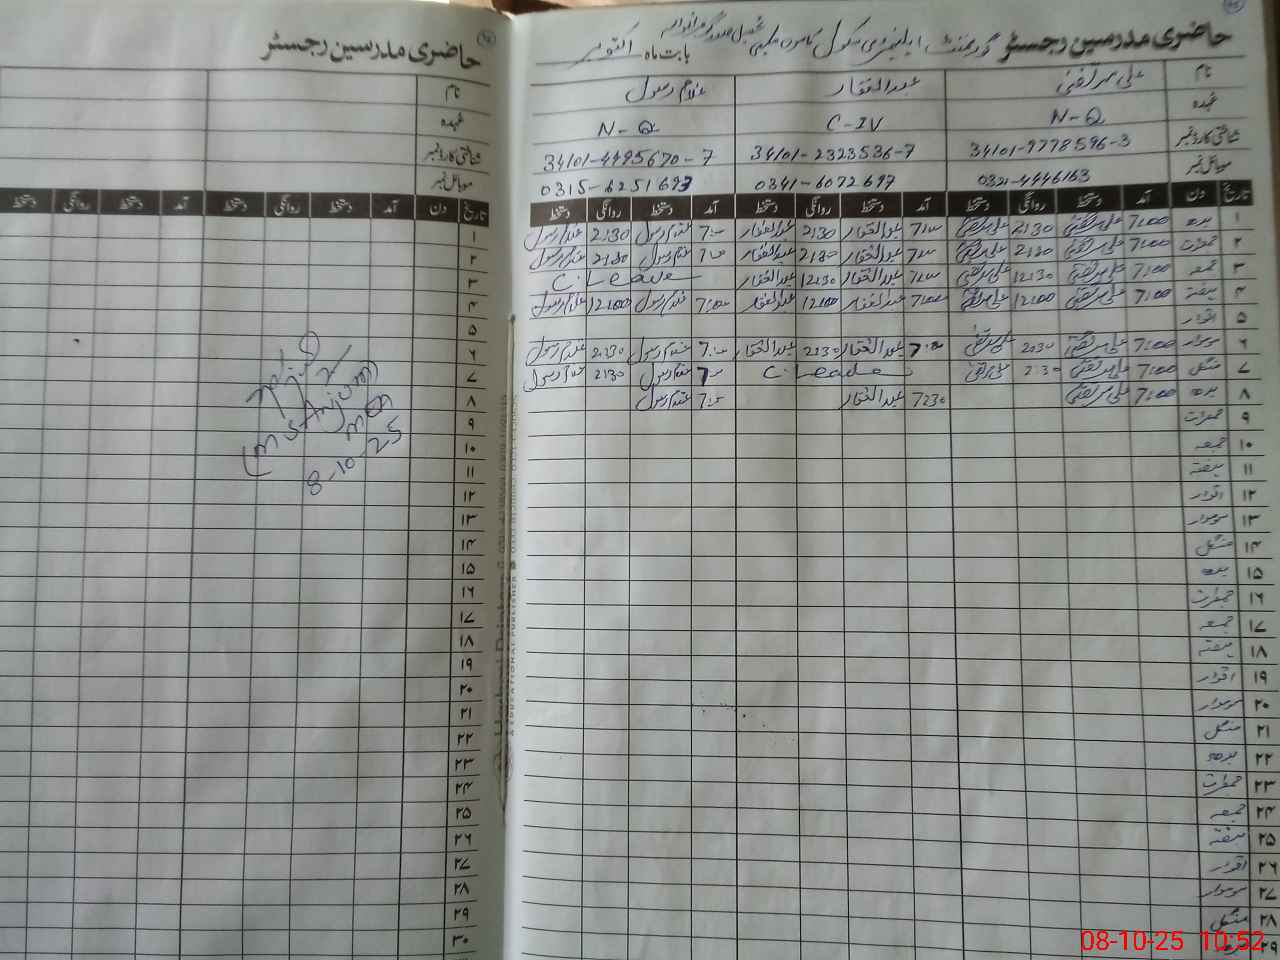 حاضری مدرسین رجسٹر گورنمنٹ ایلیمنٹری سکول
بابت ماہ اکتوبر
نام علی مرتضیٰ عبدالغفار غلام رسول
عہدہ N-Q C-IV N-Q
شناختی کارڈ نمبر 34101-9778596-3 34101-2323536-7 34101-4495670-7
موبائل نمبر 0321-4446163 0341-6072697 0315-6251697
تاریخ دن آمد دستخط روانگی دستخط آمد دستخط روانگی دستخط آمد دستخط روانگی دستخط
۱ بدھ 7:00 علی مرتضیٰ 2:30 علی مرتضیٰ 7:00 عبدالغفار 2:30 عبدالغفار 7:00 غلام رسول 2:30 غلام رسول
۲ جمعرات 7:00 علی مرتضیٰ 2:30 علی مرتضیٰ 7:00 عبدالغفار 2:30 عبدالغفار 7:00 غلام رسول 2:30 غلام رسول
۳ جمعہ 7:00 علی مرتضیٰ 12:30 علی مرتضیٰ 7:00 عبدالغفار 12:30 عبدالغفار C-Leave
۴ ہفتہ 7:00 علی مرتضیٰ 12:00 علی مرتضیٰ 7:00 عبدالغفار 12:00 عبدالغفار 7:00 غلام رسول 12:00 غلام رسول
۵ اتوار
۶ سوموار 7:00 علی مرتضیٰ 2:30 علی مرتضیٰ 7:00 عبدالغفار 2:30 عبدالغفار 7:00 غلام رسول 2:30 غلام رسول
۷ منگل 7:00 علی مرتضیٰ 2:30 علی مرتضیٰ C-Leave 7:00 غلام رسول 2:30 غلام رسول
۸ بدھ 7:00 علی مرتضیٰ 7:30 عبدالغفار 7:00 غلام رسول
۹ جمعرات
۱۰ جمعہ
۱۱ ہفتہ
۱۲ اتوار
۱۳ سوموار
۱۴ منگل
۱۵ بدھ
۱۶ جمعرات
۱۷ جمعہ
۱۸ ہفتہ
۱۹ اتوار
۲۰ سوموار
۲۱ منگل
۲۲ بدھ
۲۳ جمعرات
۲۴ جمعہ
۲۵ ہفتہ
۲۶ اتوار
۲۷ سوموار
۲۸ منگل
۲۹ بدھ
حاضری مدرسین رجسٹر
نام
عہدہ
شناختی کارڈ نمبر
موبائل نمبر
تاریخ دن آمد دستخط روانگی دستخط آمد دستخط روانگی دستخط
۱
۲
۳
۴
۵
۶
۷
۸
۹
۱۰
۱۱
۱۲
۱۳
۱۴
۱۵
۱۶
۱۷
۱۸
۱۹
۲۰
۲۱
۲۲
۲۳
۲۴
۲۵
۲۶
۲۷
۲۸
۲۹
۳۰
(Ms Anjum)
MEA
8-10-25
08-10-25 10:52